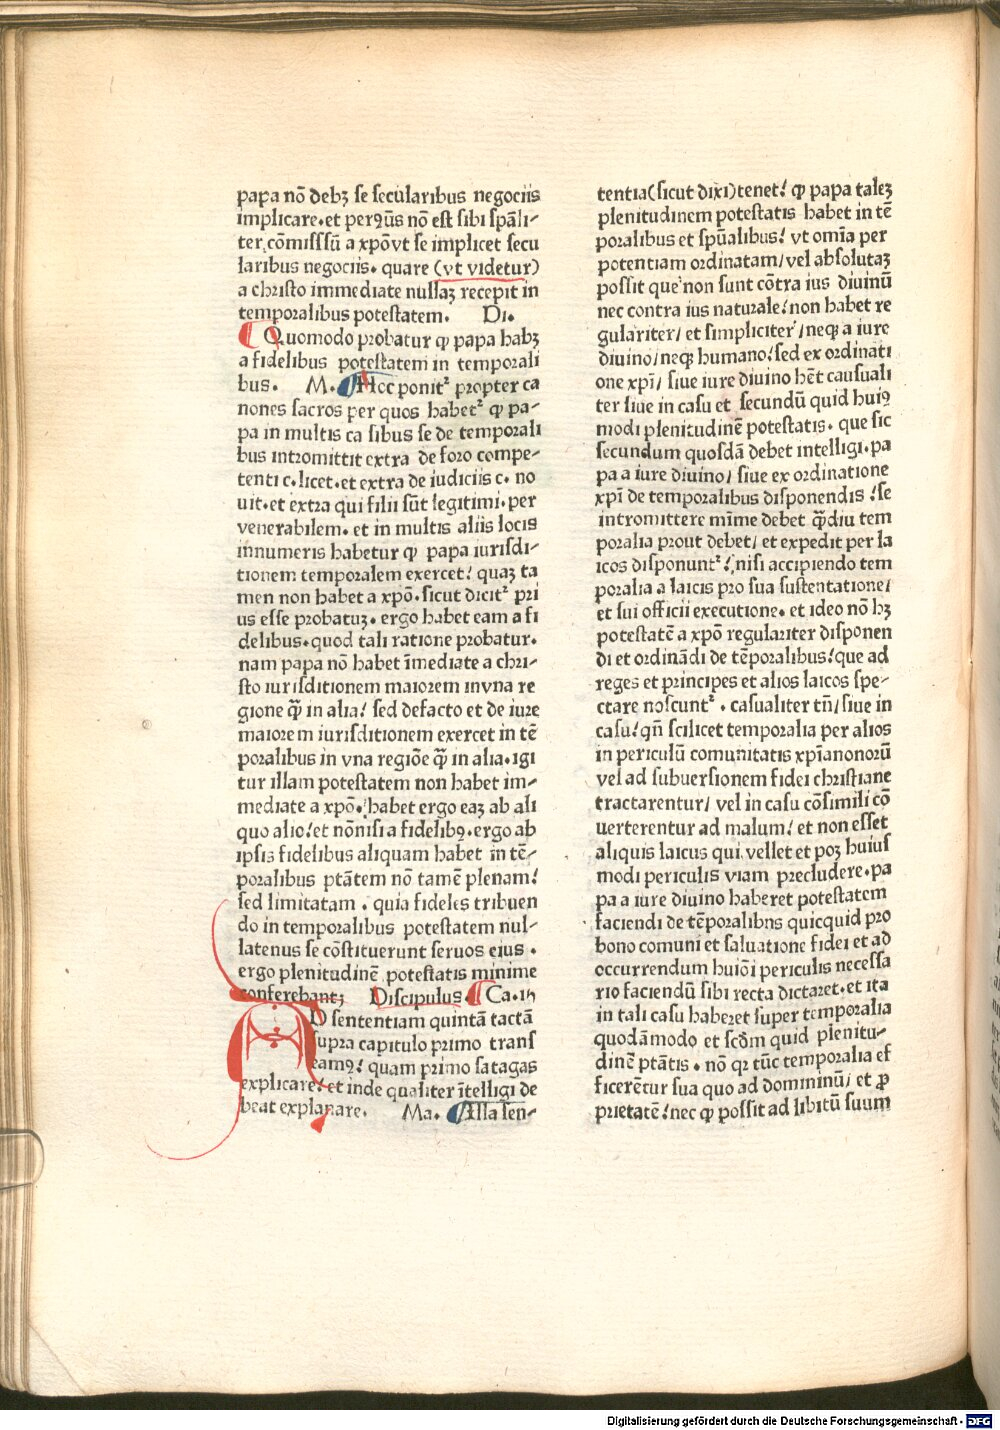 papa nō debꝫ se secularibus negociis
implicare.et perꝯn̄s nō est sibi spāli-
ter cōmisssū a xpōvt se implicet secu
laribus negociis. quare (vt videtur)
a christo immediate nullaꝫ recepit in
temporalibus potestatem. Di.
Quomodo probatur ꝙ papa habꝫ
a fidelibus potestatem in temporali
bus. M. Hcc ponitᷣ propter ca
nones sacros per quos habetᷣ ꝙ pa-
pa in multis ca sibus se de temporali
bus intromittit extra de foro compe-
tenti c.licet.et extra de iudiciis c. no
uit.et extra qui filii sūt legitimi.per
venerabilem. et in multis aliis locis
innumeris habetur ꝙ papa iurisdi-
tionem temporalem exercet! quaꝫ ta
men non habet a xpō.sicut dicitᷣ pri
us esse probatuꝫ. ergo habet eam a fi
delibus.quod tali ratione probatur.
nam papa nō habet īmediate a chri-
sto iurisditionem maiorem invna re
gione q̄̄ in alia! sed defacto et de iure
maiorem iurisditionem exercet in tē
poralibus in vna regiōe q̄̄ in alia.igi
tur illam potestatem non habet im-
mediate a xpō. habet ergo eaꝫ ab ali
quo alio!et nōnisi a fidelibꝯ.ergo ab
ipsis fidelibus aliquam habet in tē-
poralibus ptātem nō tamē plenam!
sed limitatam . quia fideles tribuen
do in temporalibus potestatem nul-
latenus se cōstituerunt seruos eius .
ergo plenitudinē potestatis minime
conferebant; Discipulus. Ca.iii
AD sententiam quintā tactā
supra capitulo primo trans
eamꝯ! quam primo satagas
explicare! et inde qualiter ītelligi de
beat explanare. Ma. Illa sen-
tentia(sicut dixi)tenet! ꝙ papa taleꝫ
plenitudinem potestatis habet in tē
poralibus et spūalibus! vt omīa per
potentiam ordinatam/vel absolutaꝫ
possit que non sunt cōtra ius diuinū
nec contra ius naturale!non habet re
gulariter/et simpliciter/neqꝫ a iure
diuino/neqꝫ humano!sed ex ordinati
one xpī/ siue iure diuino hēt causuali
ter siue in casu et secundū quid huiꝯ
modi plenitudinē potestatis. que sic
secundum quosdā debet intelligi.pa
pa a iure diuino/ siue ex ordinatione
xpī de temporalibus disponendis !se
intromittere mīme debet q̄̄diu tem
poralia prout debet/ et expedit per la
icos disponuntᷣ! nisi accipiendo tem
poralia a laicis pro sua sustentatione/
et sui officii executione. et ideo nō hꝫ
potestatē a xpō regulariter disponen
di et ordinādi de tēporalibus!que ad
reges et principes et alios laicos spe-
ctare noscuntᷣ . casualiter tn̄/siue in
casu!qn̄ scilicet temporalia per alios
in periculū comunitatis xpīanonorū
vel ad subuersionem fidei christiane
tractarentur/ vel in casu cōsimili cō
uerterentur ad malum! et non esset
aliquis laicus qui vellet et poꝫ huius
modi periculis viam precludere.pa
pa a iure diuino haberet potestatem
faciendi de tēporalibns quicquid pro
bono comuni et saluatione fidei et ad
occurrendum huiōi periculis necessa
rio faciendū sibi recta dictaret.et ita
in tali casu haberet super temporalia
quodāmodo et scdm̄ quid plenitu-
dinē ptātis . nō qꝛ tūc temporalia ef
ficerētur sua quo ad domininū/ et ꝓ
prietatē!nec ꝙ possit ad libitū suum
Digitalisierung gefördert durch die Deutsche Forschungsgemeinschaft - DFG